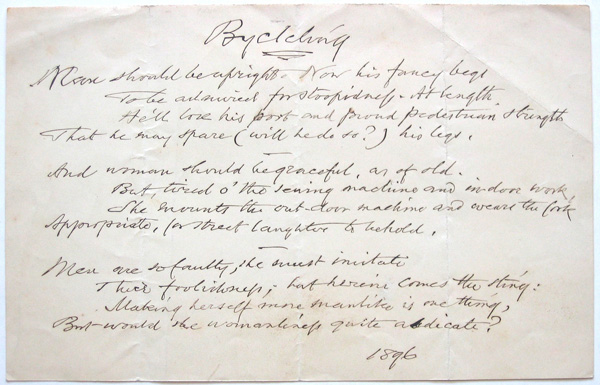 Bycicling
Man should be upright. Now his fancy begs
To be admired for stoopidness. At length
He'll lose his port and proud pedestrian strength
That he may spare (will he do so?) his legs.
And woman should be graceful, as of old.
But, tired o' the sewing machine and in-door work,
She mounts the out-door machine and wears the
Appropriate, for street laughter to behold.
Men are so faulty, she must imitate
Their foolishness; but herein comes the sting:
Making herself more manlike is one thing,
But would she womanliness quite abdicate?
1896